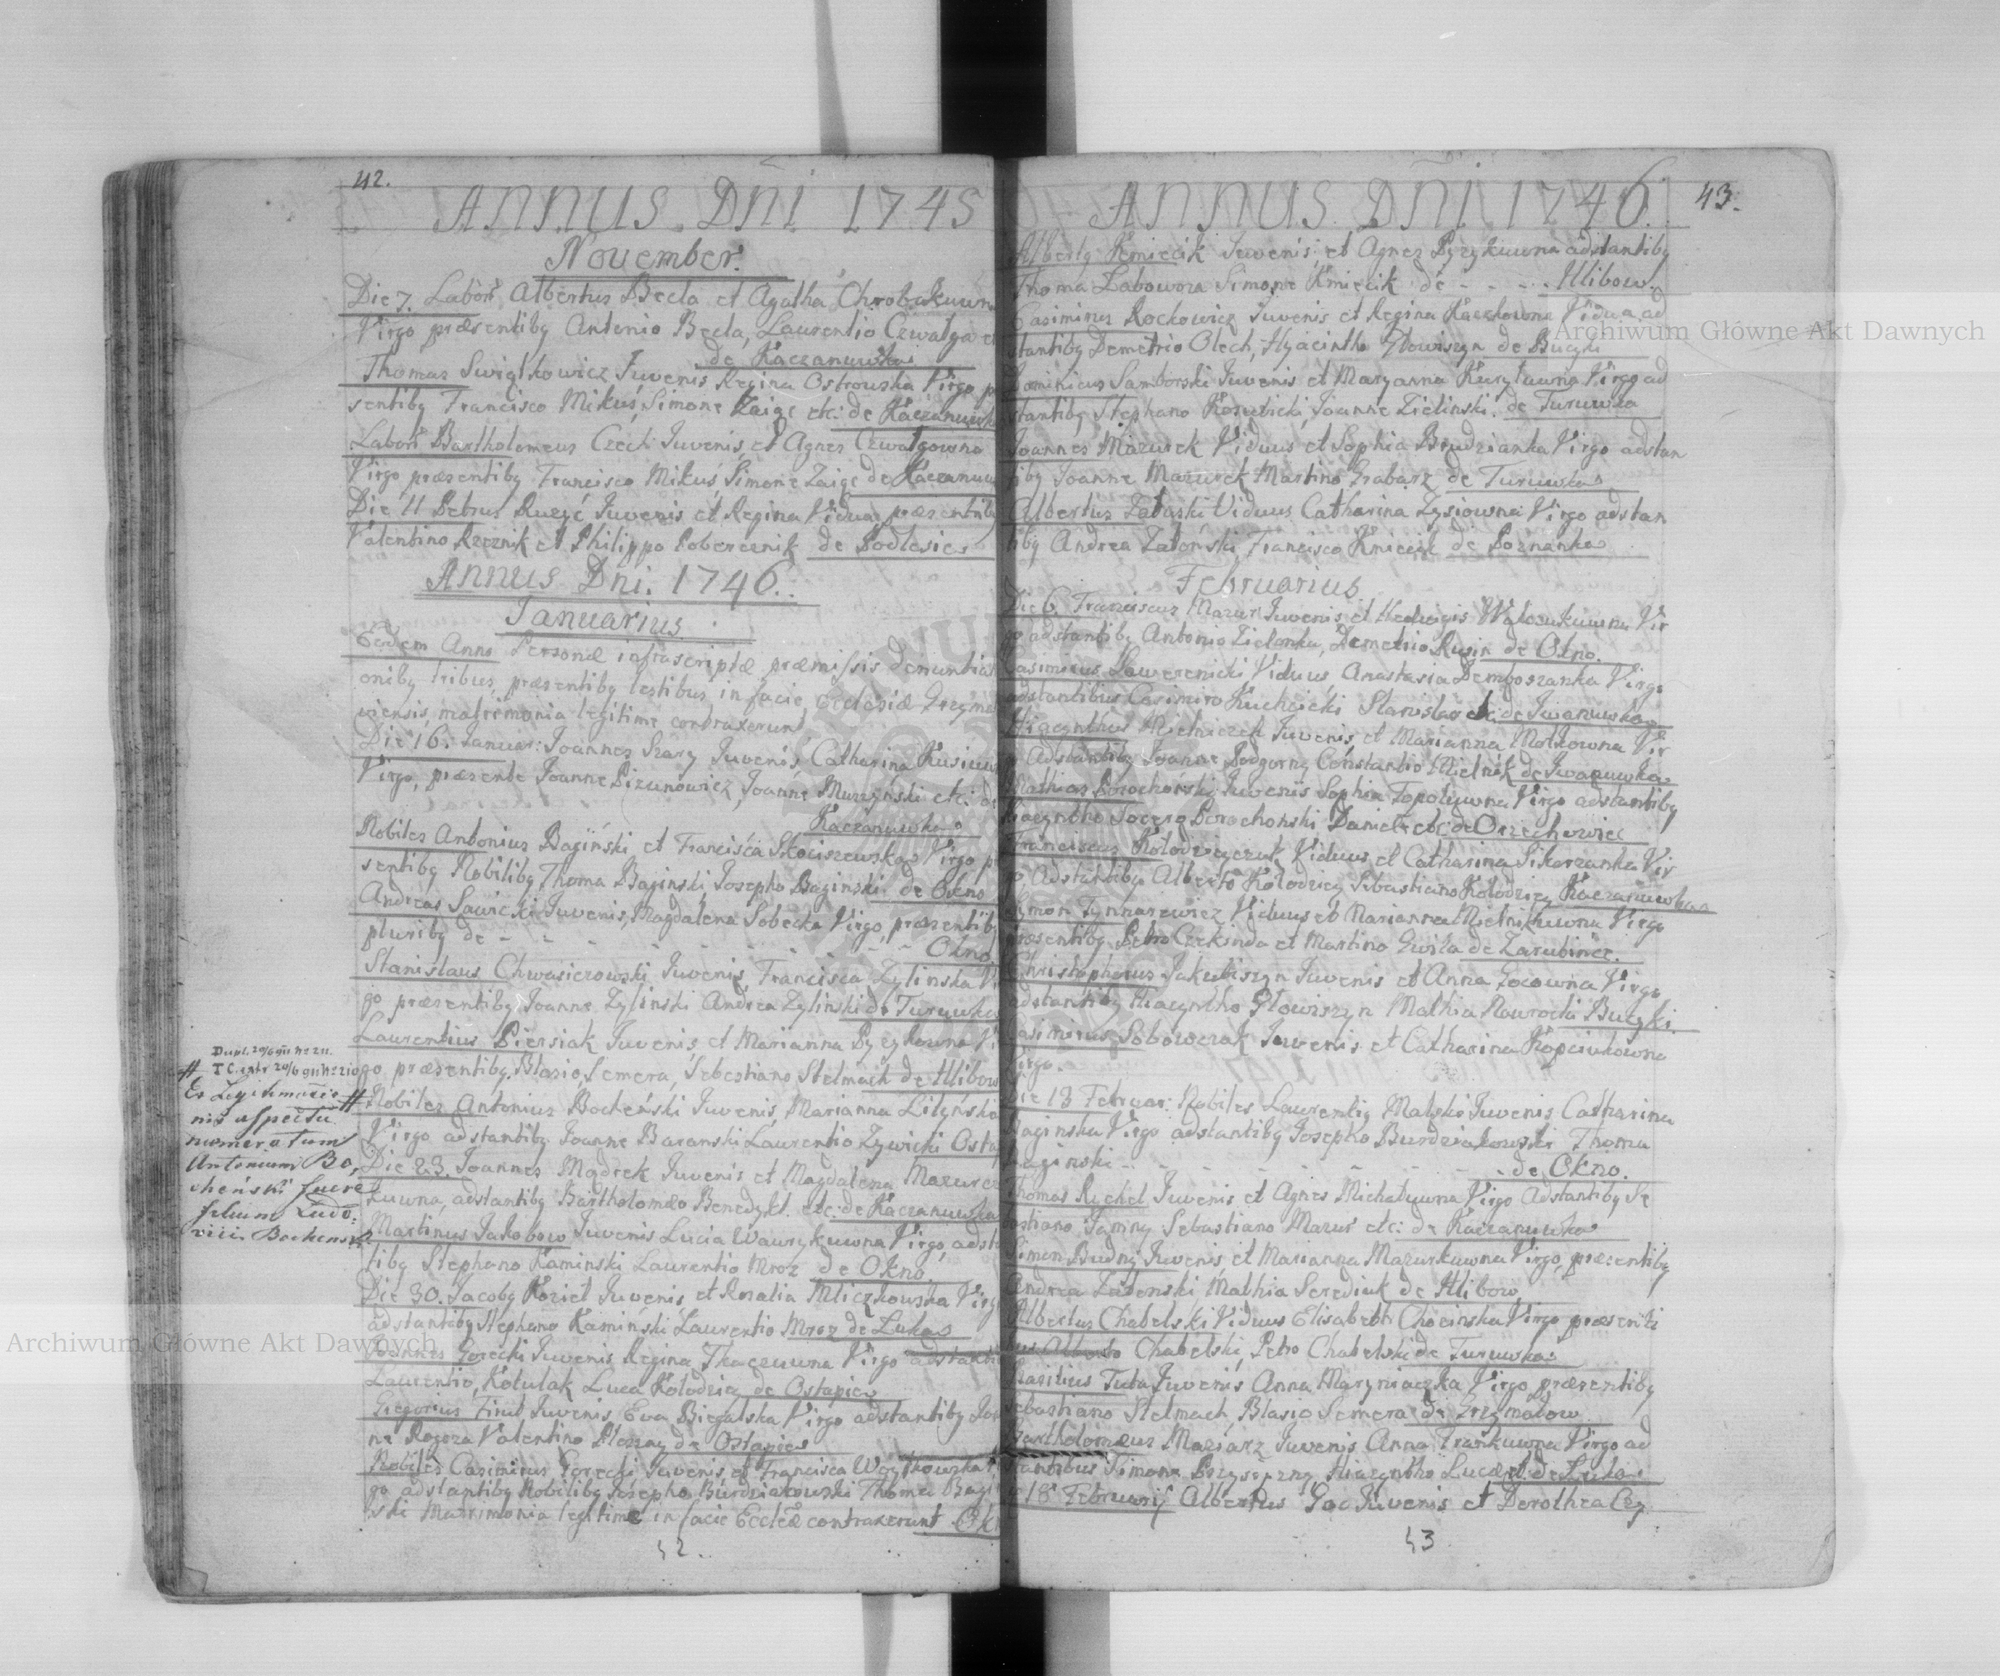 42.
ANNUS DÑI 1745
November.
Die 7. Labor Albertus Becla et Agatha Chrobakuwna
Virgo præsentiby Antonio Becla, Laurentio Czwalga et
de Kaczanuwka
Thomas Swiątkowicz Iuvenis Regina Ostrowska Virgo præ
sentiby Francisco Mikuś, Simone Zaige etc: de Kaczanuwka
Labor Bartholomeus Czech Iuvenis et Agnes Czwalgowna
Virgo præsentiby Francisco Mikuś, Simone Zaige de Kaczanuw
Die 11 Petrus Iuvenis et Regina Vidua præsentiby
Valentino Rzeznik et Philippo Pobereznik de Podlesie
ANNUS Dni. 1746.
Ianuarius
Eodem Anno Personæ infrascriptæ præmissis denuntiati
oniby tribus, præsentiby testibus in facie Ecclesiæ Grzymal
oviensis, matrimonia legitime contraxerunt
Die 16. Ianuar: Ioannes Szary Iuvenis Catharina
Virgo, præsente Ioanne Pizunowicz, Ioanne Muszyński etc: de
Kaczanuwka
Nobiles Antonius Bagiński et Francisca Skociszewska Virgo præ
sentiby Nobiliby Thoma Baginski, Iosepho Baginski de Okno
Andreas Sawicki Iuvenis, Magdalena Sobecka Virgo, præsentiby
pluriby de - - - - - Okno
Stanislaus Chwasiczowski Iuvenis, Francisca Zylinska Vir
go præsentiby Ioanne Zylinski Andrea Zylinski de Turuwka
Laurentius Piersiak Iuvenis et Marianna Pyzykowna Vir
go præsentiby Blasio Semera, Sebestiano Stelmach de Hlibow
Nobiles Antonius Bocheński Iuvenis, Marianna Lityńska
Virgo adstantiby Ioanne Baranski Laurentio Zywicki Ostap
Die 23 Ioannes Mądrek Iuvenis et Magdalena Mazurcz
kuwna, adstantiby Bartholomæo Benedykt. etc: de Kaczanuwka
Martinus Iakobow Iuvenis Lucia Wawrykuwna Virgo, adstan
tiby Stephano Kaminski Laurentio Mroz de Okno
Die 30. Iacoby Koziet Iuvenis, et Rosalia Mliczkowska Virgo
adstantiby Stephano Kamiński Laurentio Mroz de Luka
Ioannes Gorecki Iuvenis Regina Tkaczuwna Virgo adstanti
Laurentio Kotulak Luca Kolodziey de Ostapie
Gregorius Iuvenis, Eva Biegalska Virgo adstantiby Ioan
ne Rogoza Valentino de Ostapie
Nobiles Casimirus Gorecki Iuvenis et Francisca Woytkowska Vir
go adstantiby Nobiliby Iosepho Burdziakowski Thoma Bagin
ski Matrimonia legitime in facie Eccłæ contraxerunt Okno
42.
Dupl. 20/6 911 № 211.
# T C extr 20/6 911 № 210
Ex Legitimatio
nis aspectu
numeratum
Antonium Bo,
cheński fuere
filium Ludo:
vici Bochenski
ANNUS DÑI 1746. 43.
Alberty Kmiecik Iuvenis, et Agnes Pyzykuwna adstantiby
Thoma Zabowora Simone Kmiecik de - - - Hlibow.
Casimirus Rockowicz Iuvenis et Regina Kaczkowna Vidua ad
stantiby Demetrio Olech, Hyacintho Glowiszyn de Bucyki
Dominicus Samborski Iuvenis et Maryanna Kurytuwna Virgo ad
stantiby Stephano Kosuticki, Ioanne Zielinski. de Turuwka
Ioannes Mazurek Viduus et Sophia Brudzianka Virgo adstan
tiby Ioanne Mazurek Martino Grabarz de Turuwka
Albertus Zatuski Viduus Catharina Zysiowna Virgo adstan
tiby Andrea Zatoński, Francisco Kmiecik de Poznanka
Februarius
Die 6. Franciscus Mazur Iuvenis et Hedvigis Walczukuwna Vir
go adstantiby Antonio Zielonka, Demetrio Rusin de Okno.
Casimirus Lawerenicki Viduus Anastasia Demboszanka Virgo
adstantibus Casimiro Kuchcicki Stanislao etc: de Iwanuwka
Hiacynthus Mielniczek Iuvenis et Marianna Motkowna Vir
go Adstantiby Ioanne Podgorny Constantio Mielnik de Iwanuwka
Mathias Borochoński Iuvenis Sophia Topoluwna Virgo adstantiby
Hiacyntho Socero Borochoński Daniele etc: de Orzechowiec
Franciscus Kolodzieyczuk Viduus et Catharina Sikorzanka Vir
go Adstantiby Alberto Kolodziey Sebastiano Kolodziey Kaczanuwka
Symon Tynnarewicz Viduus et Marianna Mielnikuwna Virgo
præsentiby Petro Czekinda et Martino Gwiła de Zarubince.
Christophorus Iakubiszyn Iuvenis et Anna Gocowna Virgo
adstantiby Hiacyntho Glowiszyn Mathia Nawrocki Bucyki.
Casimirus Sobowczak Iuvenis et Catharina Kopciukowna
Virgo.
Die 13 Februar: Nobiles Laurentiy Malski Iuvenis Catharina
Baginska Virgo adstantiby Iosepho Burdziakowski Thoma
Baginski - - - - - de Okno.
Thomas Rychel Iuvenis et Agnes Michaluwna Virgo Adstantiby Se
bastiano Sebastiano Mazur etc: de Kaczanuwka
Simon Budny Iuvenis et Marianna Mazurkuwna Virgo, præsentiby
Andrea Zatonski, Mathia Serediuk de Hlibow
Albertus Chabelski Viduus Elisabeth Chocinska Virgo præsenti
bus Alberto Chabelski, Petro Chabelski de Turuwka
Basilius Tuta Iuvenis Anna Maryniaczka Virgo præsentiby
Sebastiano Stelmach, Blasio Semera de Grzymalow
Bartholomæus Maziarz Iuvenis Anna Frankuwna Virgo ad
stantibus Simone Hiacyntho Luca et. de Luka
18 Februarij Albertus Goc Iuvenis et Dorothea Cey
43
Archiwum Główne Akt Dawnych
Archiwum Główne Akt Dawnych